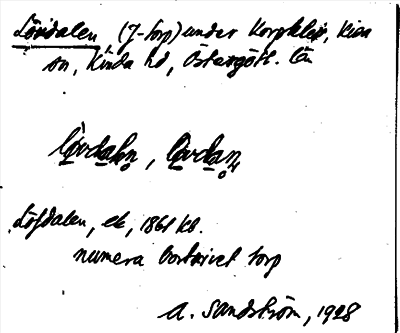 Lövdalen (J-torp) under Korpklev, Kisa
sn, Kinda hd, Östergötl. län
Lövdaln, Lövdan
Löfdalen, ek, 1861 kb.
numera bortrivet torp
A. Sandström, 1928